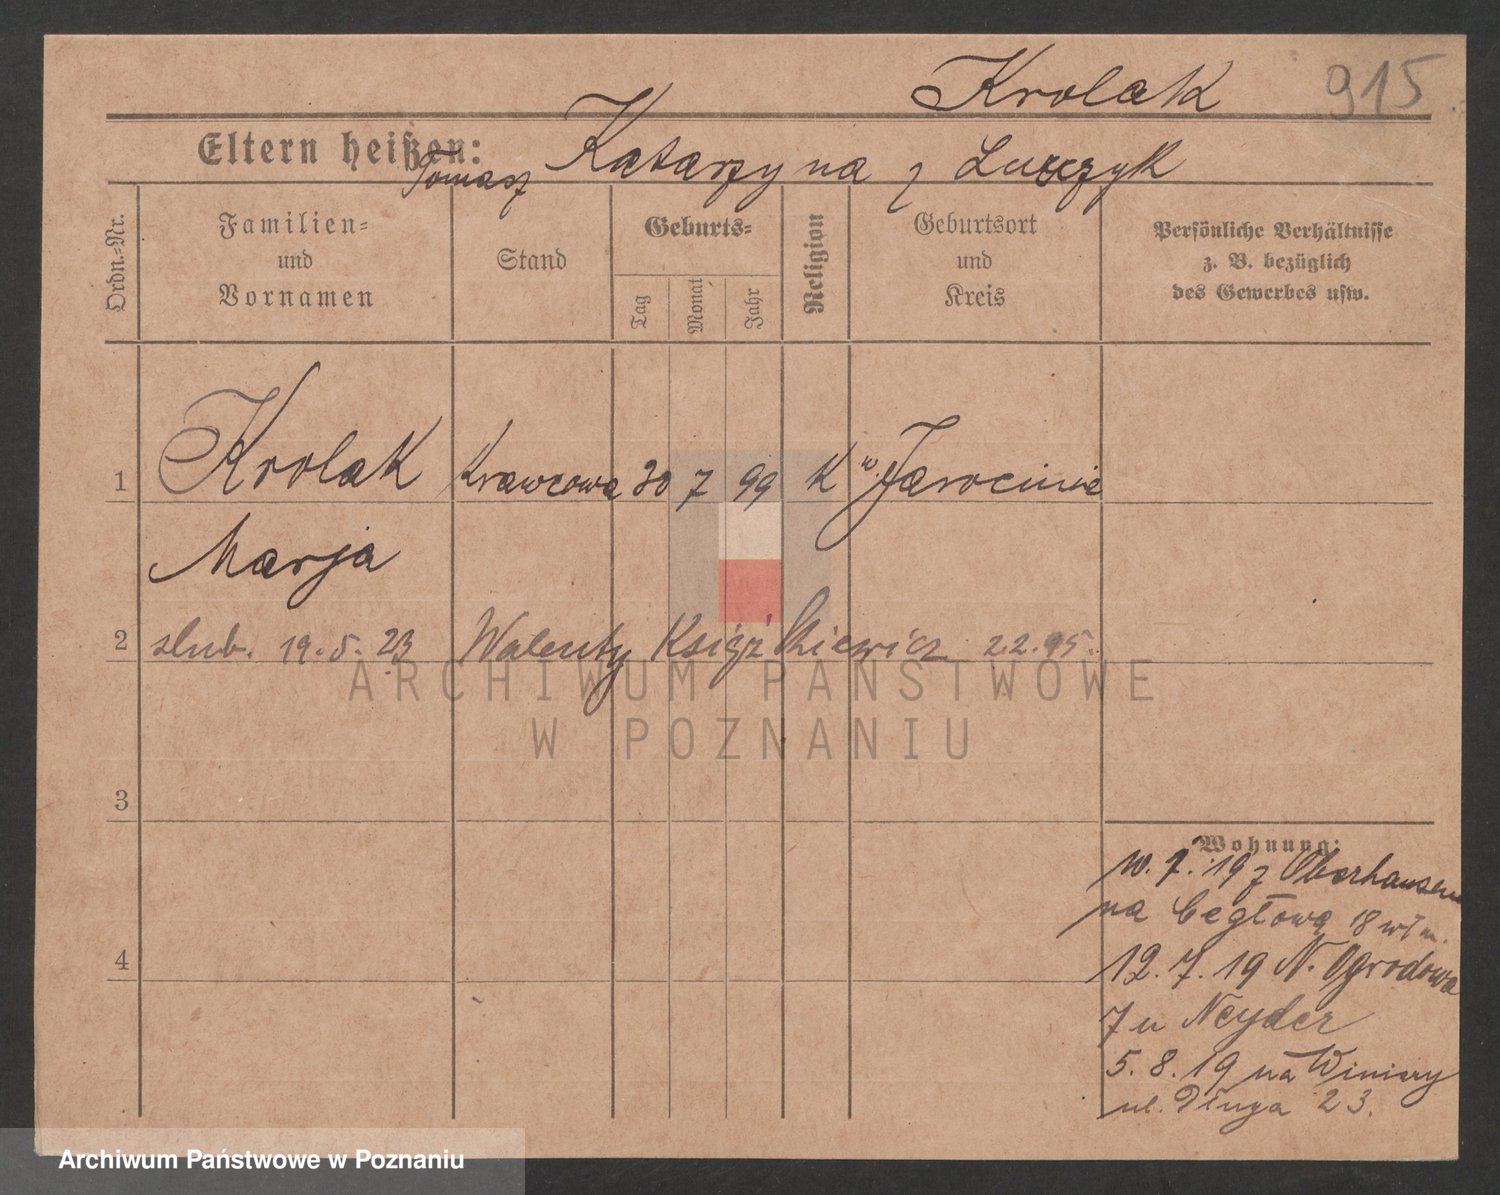 Krolak 915
Eltern heißen: Tomasz Katarzyna z
Ordn.-Nr.
Familien-
und
Vornamen
Stand
Geburts-
Tag
Monat
Jahr
Religion
Geburtsort
und
Kreis
Persönliche Verhältnisse
z. B. bezüglich
des Gewerbes usw.
1 Krolak Krawcowa 30 7 99 K w Jarocinie
Marja
2 slub. 19.5.23 Walenty Książkiewicz 2.2.95.
3
4
Wohnung:
19 z Oberhausen
na Cegłową 18
12.7.19 N. Ogrodowa
7 u Neyder
5.8.19 na Winiary
ul. Długa 23.
ARCHIWUM PAŃSTWOWE
W POZNANIU
Archiwum Państwowe w Poznaniu